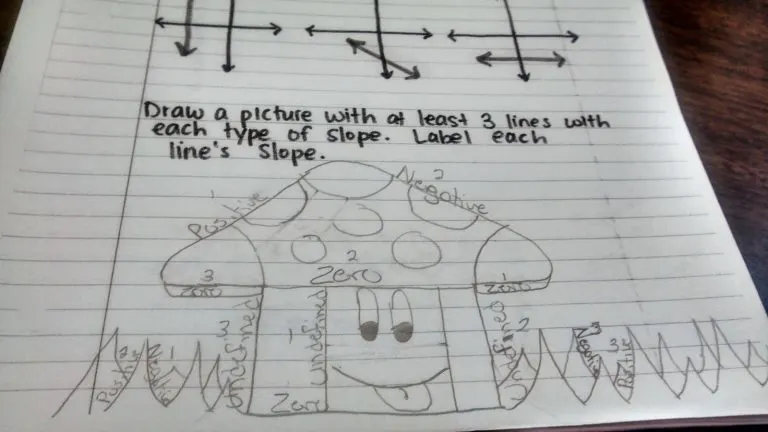 Draw a picture with at least 3 lines with
each type of slope. Label each
line's slope.
1
Positive
2
Negative
2
Zero
3
Zero
1
Zero
3
Undefined
1
Undefined
2
Undefined
2
Positive
1
Negative
3
Negative
3
Positive
Zero